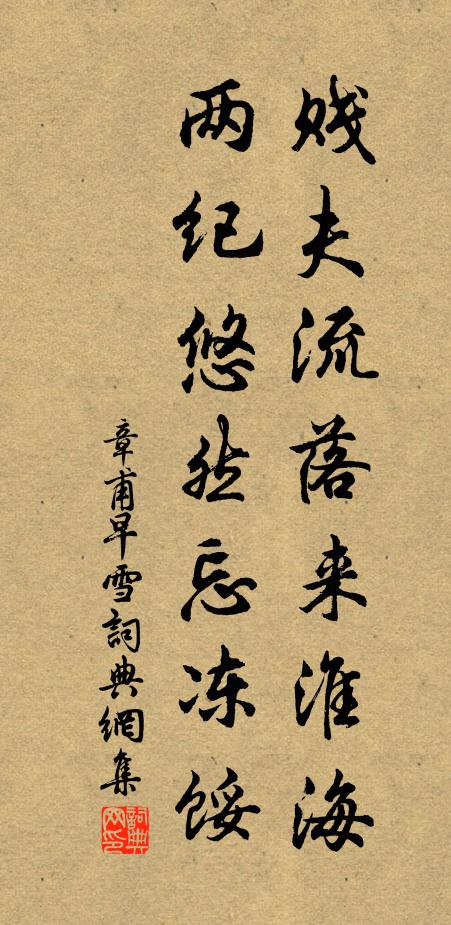 贱夫流落来淮海
两纪悠然忘冻馁
章甫早雪詞典網集
詞典网印